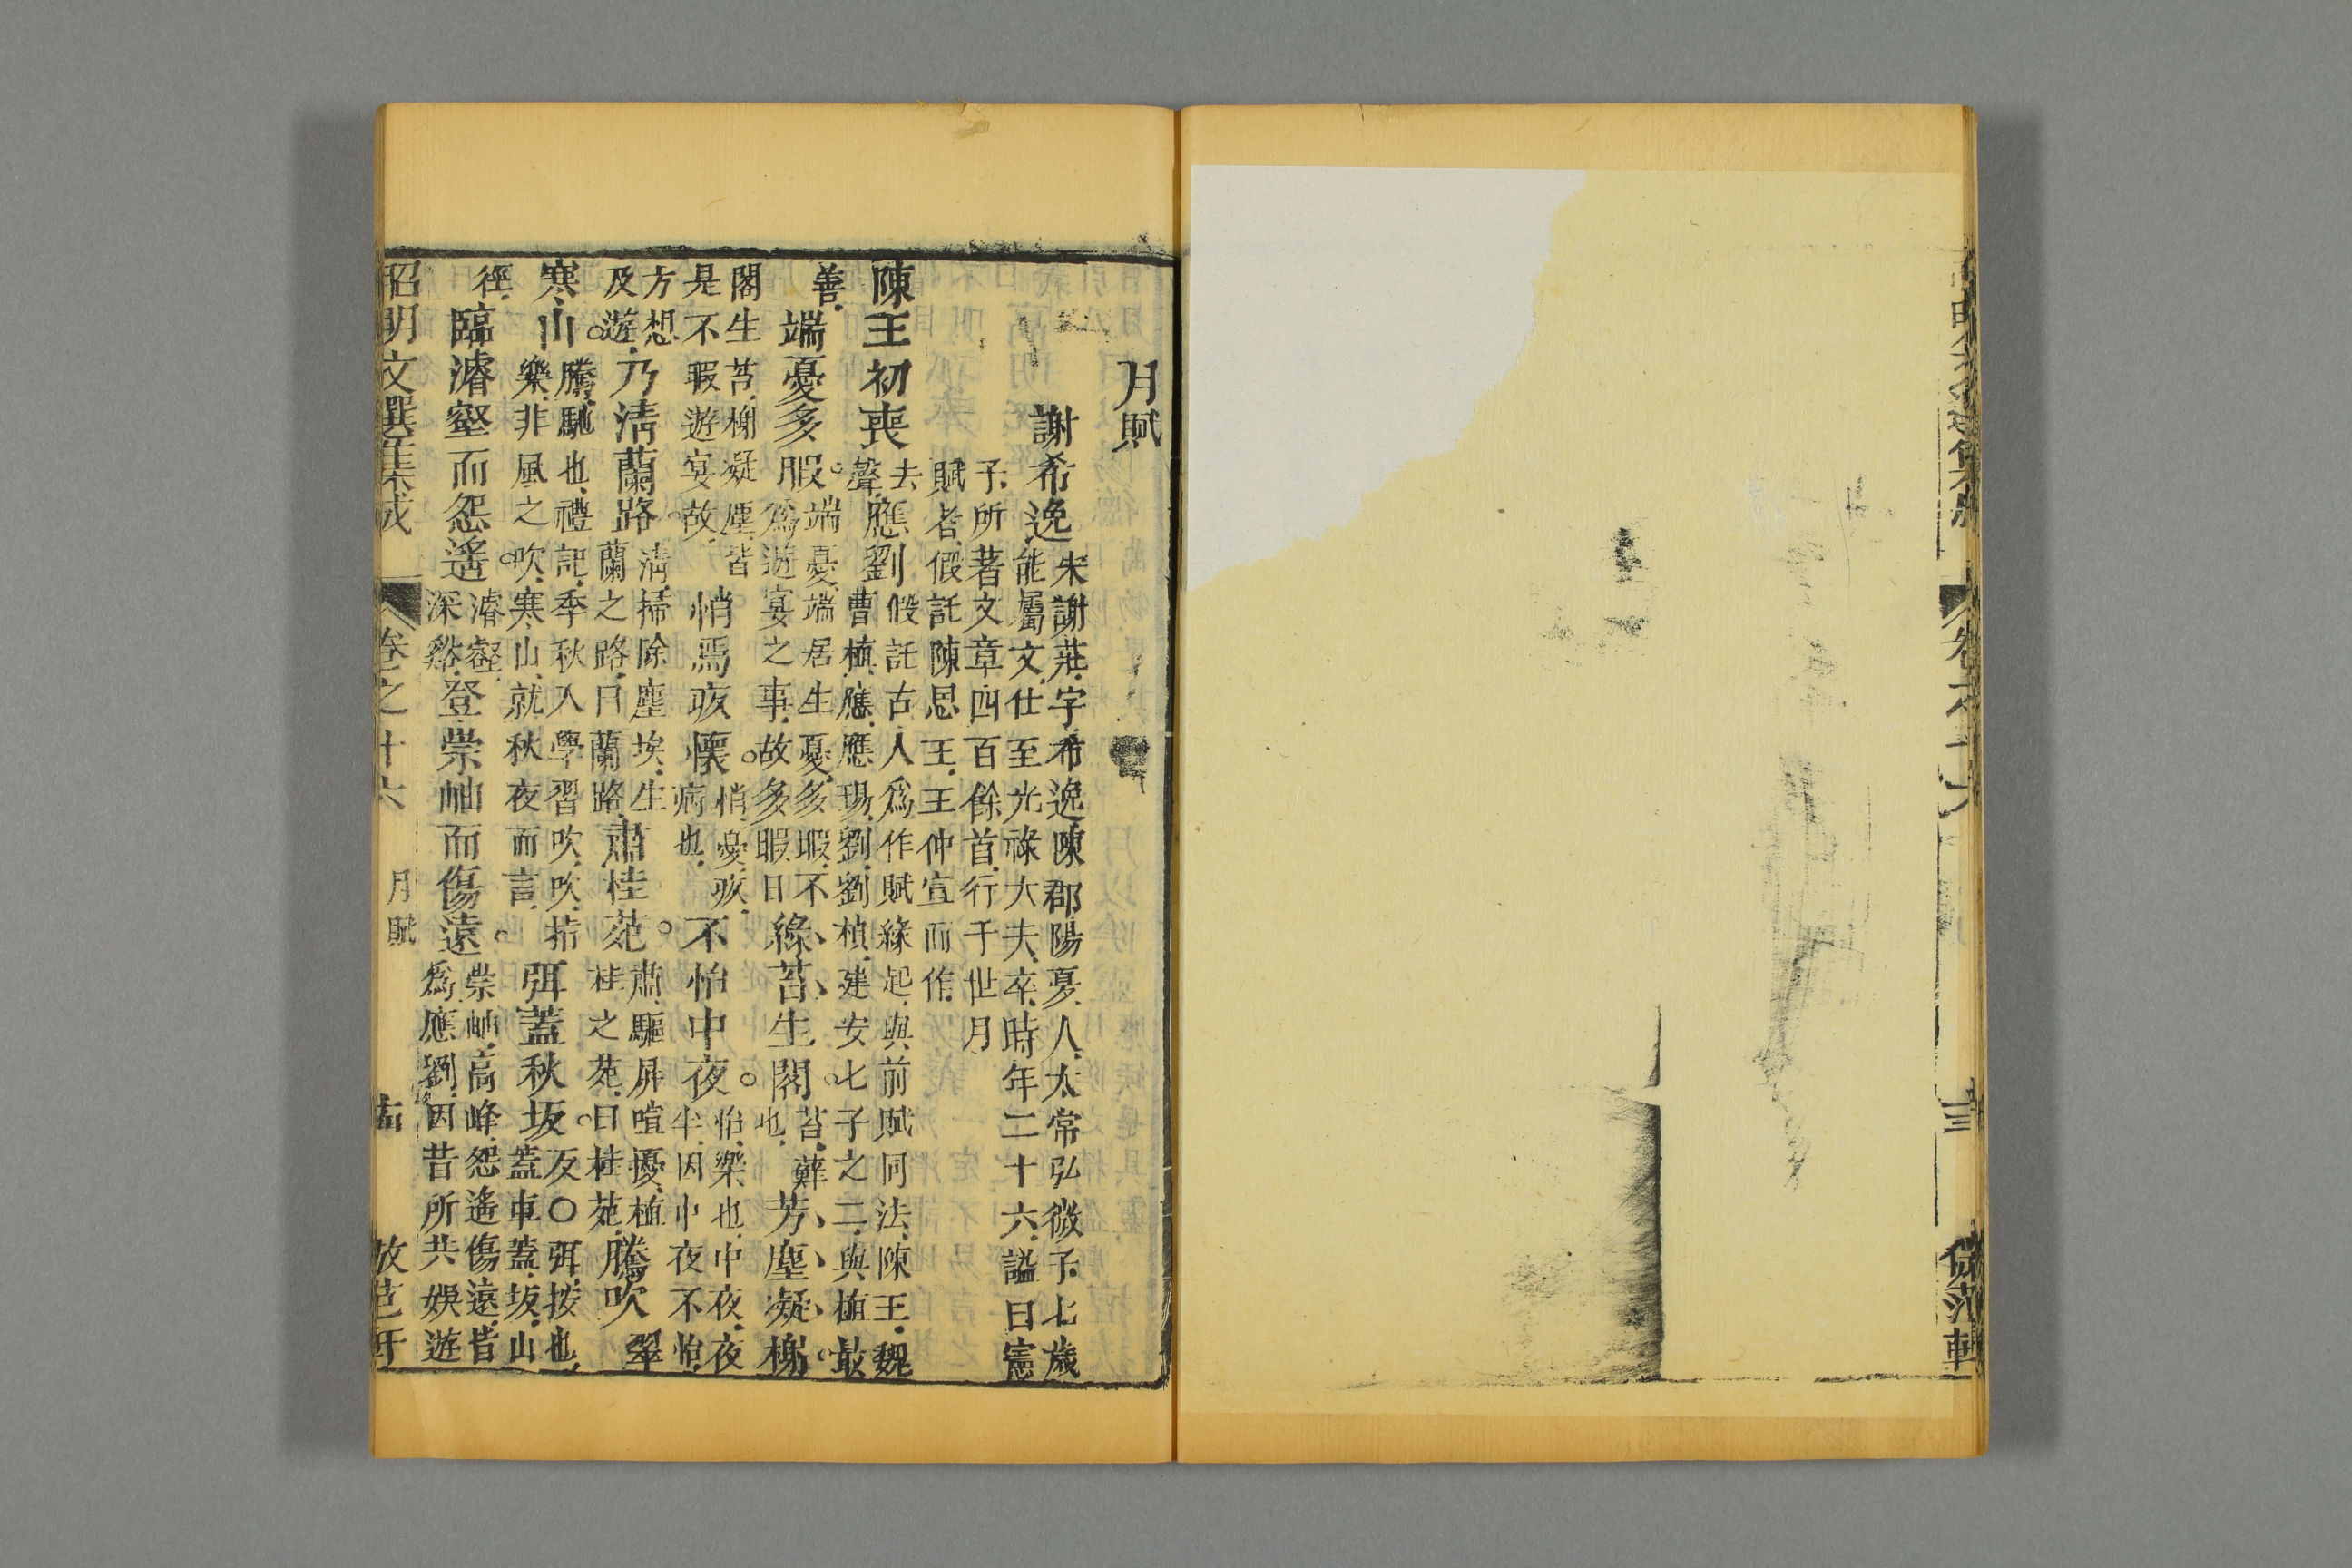 卷之十六
月賦
謝希逸
宋謝莊字希逸陳郡陽夏人太常弘微子七歲
能屬文仕至光祿大夫卒時年二十六謚曰憲
子所著文章四百餘首行于世月
賦者假託陳思王王仲宣而作
陳王初喪去聲應劉
假託古人爲作賦緣起與前賦同法陳王魏
曹植應應瑒劉劉楨建安七子之二與植最
善端憂多暇
端憂端居生憂多暇不
爲遊宴之事故多暇日
綠苔生閣苔蘚也芳塵凝榭
閣生苔榭凝塵皆
是不暇遊宴故
悄焉疚懷悄憂疚病也不怡中夜
怡樂也中夜夜
半因中夜不怡
方想
及遊
乃清蘭路
清掃除塵埃生
蘭之路曰蘭路
肅桂苑
肅驅屏喧擾植
桂之苑曰桂苑
騰吹翠
寒山
騰馳也禮記季秋入學習吹吹指
樂非風之吹寒山就秋夜而言
弭蓋秋坂
反○弭按也
蓋車蓋坂山
徑臨濬壑而怨遙
濬壑
深谿
登崇岫而傷遠
崇岫高峰怨遙傷遠皆
爲應劉因昔所共娛遊
昭明文選集成 卷之十六 月賦